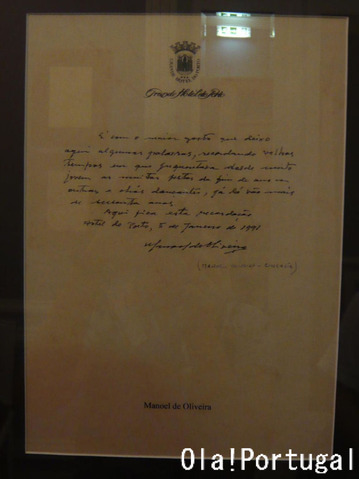 Grande Hotel do Porto
É com o maior gosto que deixo
aqui algumas palavras, recordando velhos
tempos em que frequentava desde muito
jovem as muitas festas de fim de ano
outras e chás dançantes, já lá vão mais
de sessenta anos.
Aqui fica esta recordação
Hotel do Porto, 5 de Janeiro de 1991
Manoel de Oliveira
(MANOEL OLIVEIRA - CINEASTA)
Manoel de Oliveira
Ola!Portugal